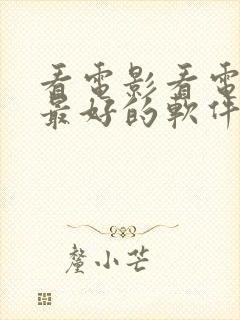 看電影看電
最好的軟件
釐小芒